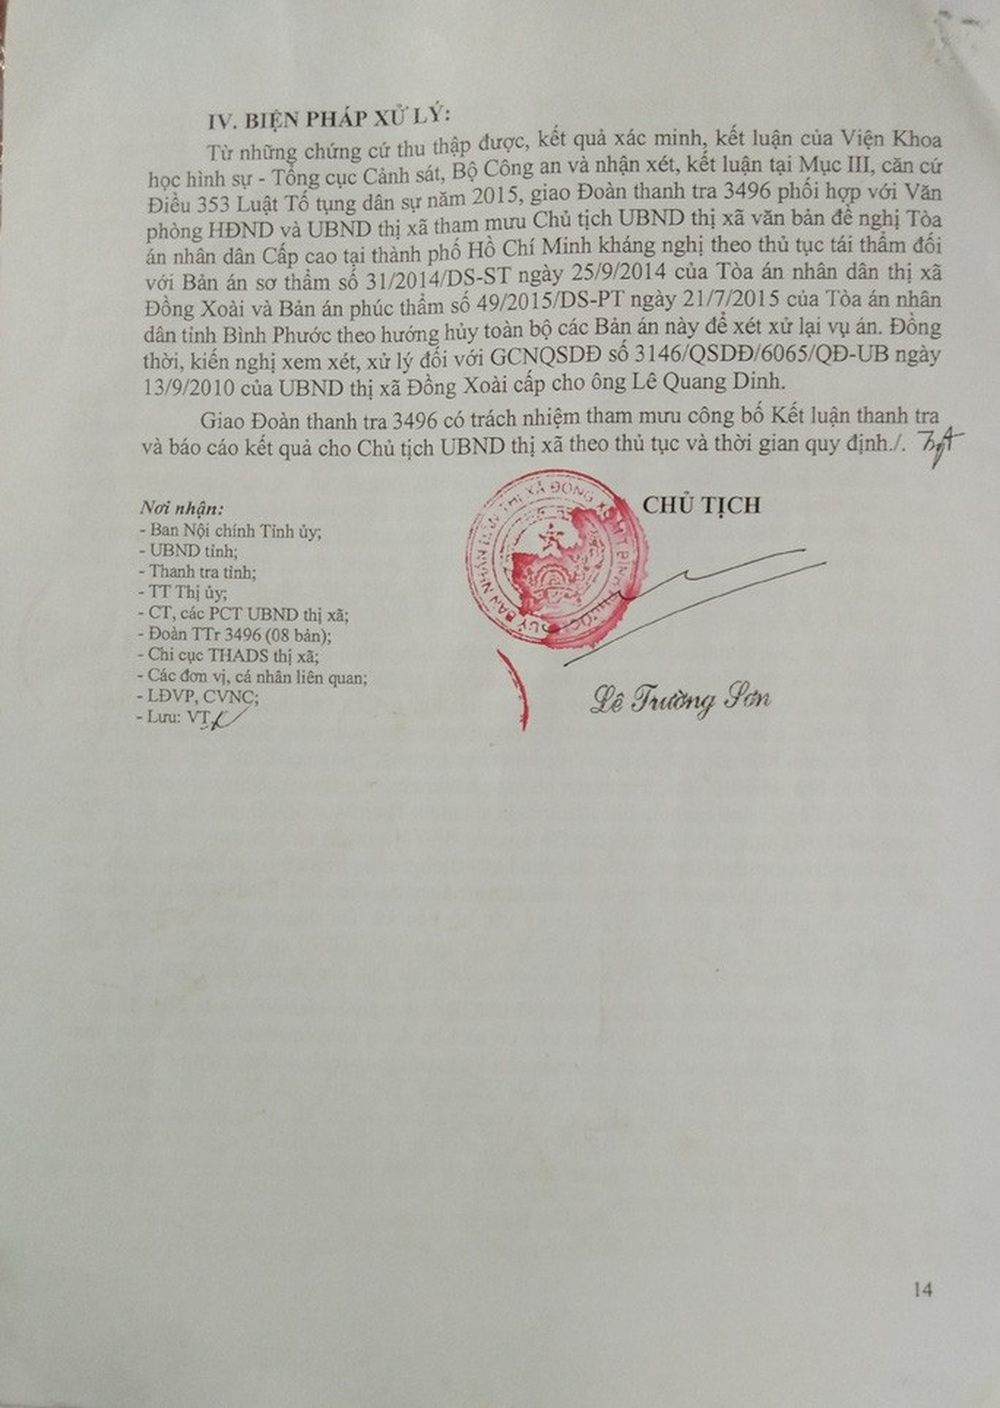 IV. BIỆN PHÁP XỬ LÝ:
Từ những chứng cứ thu thập được, kết quả xác minh, kết luận của Viện Khoa
học hình sự - Tổng cục Cảnh sát, Bộ Công an và nhận xét, kết luận tại Mục III, căn cứ
Điều 353 Luật Tố tụng dân sự năm 2015, giao Đoàn thanh tra 3496 phối hợp với Văn
phòng HĐND và UBND thị xã tham mưu Chủ tịch UBND thị xã văn bản đề nghị Tòa
án nhân dân Cấp cao tại thành phố Hồ Chí Minh kháng nghị theo thủ tục tái thẩm đối
với Bản án sơ thẩm số 31/2014/DS-ST ngày 25/9/2014 của Tòa án nhân dân thị xã
Đồng Xoài và Bản án phúc thẩm số 49/2015/DS-PT ngày 21/7/2015 của Tòa án nhân
dân tỉnh Bình Phước theo hướng hủy toàn bộ các Bản án này để xét xử lại vụ án. Đồng
thời, kiến nghị xem xét, xử lý đối với GCNQSDĐ số 3146/QSDĐ/6065/QĐ-UB ngày
13/9/2010 của UBND thị xã Đồng Xoài cấp cho ông Lê Quang Dinh.
Giao Đoàn thanh tra 3496 có trách nhiệm tham mưu công bố Kết luận thanh tra
và báo cáo kết quả cho Chủ tịch UBND thị xã theo thủ tục và thời gian quy định./.
CHỦ TỊCH
Lê Trường Sơn
Nơi nhận:
- Ban Nội chính Tỉnh ủy;
- UBND tỉnh;
- Thanh tra tỉnh;
- TT Thị ủy;
- CT, các PCT UBND thị xã;
- Đoàn TTr 3496 (08 bản);
- Chi cục THADS thị xã;
- Các đơn vị, cá nhân liên quan;
- LĐVP, CVNC;
- Lưu: VT
14